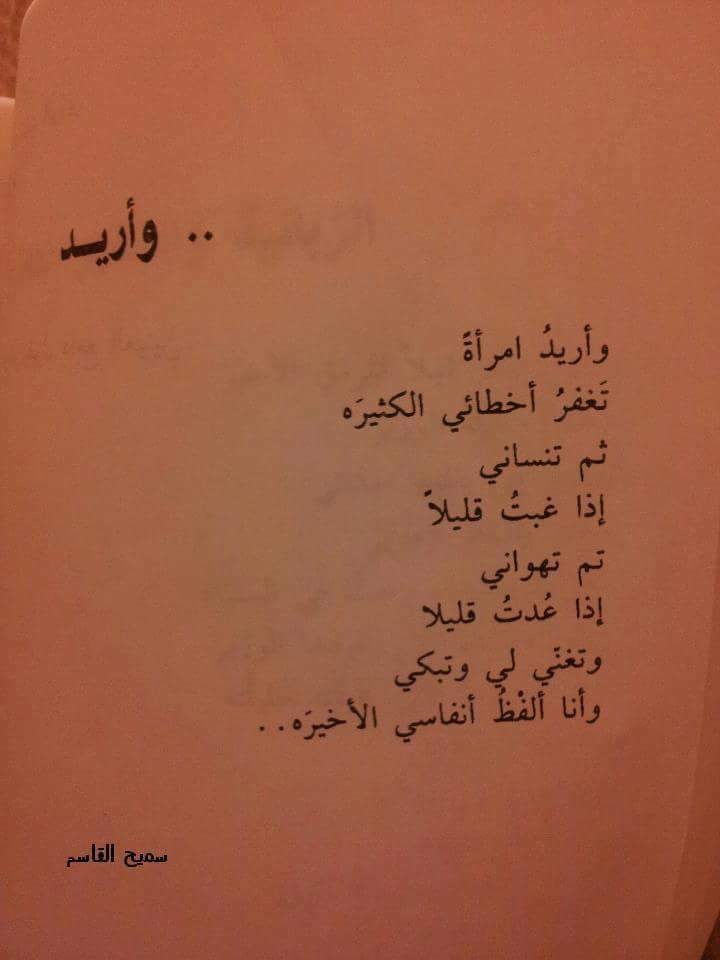 .. وأريد
وأريدُ امرأةً
تَغفرُ أخطائي الكثيرَه
ثم تنساني
إذا غبتُ قليلاً
تم تهواني
إذا عُدتُ قليلا
وتغنّي لي وتبكي
وأنا ألفْظُ أنفاسي الأخيرَه..
سميح القاسم